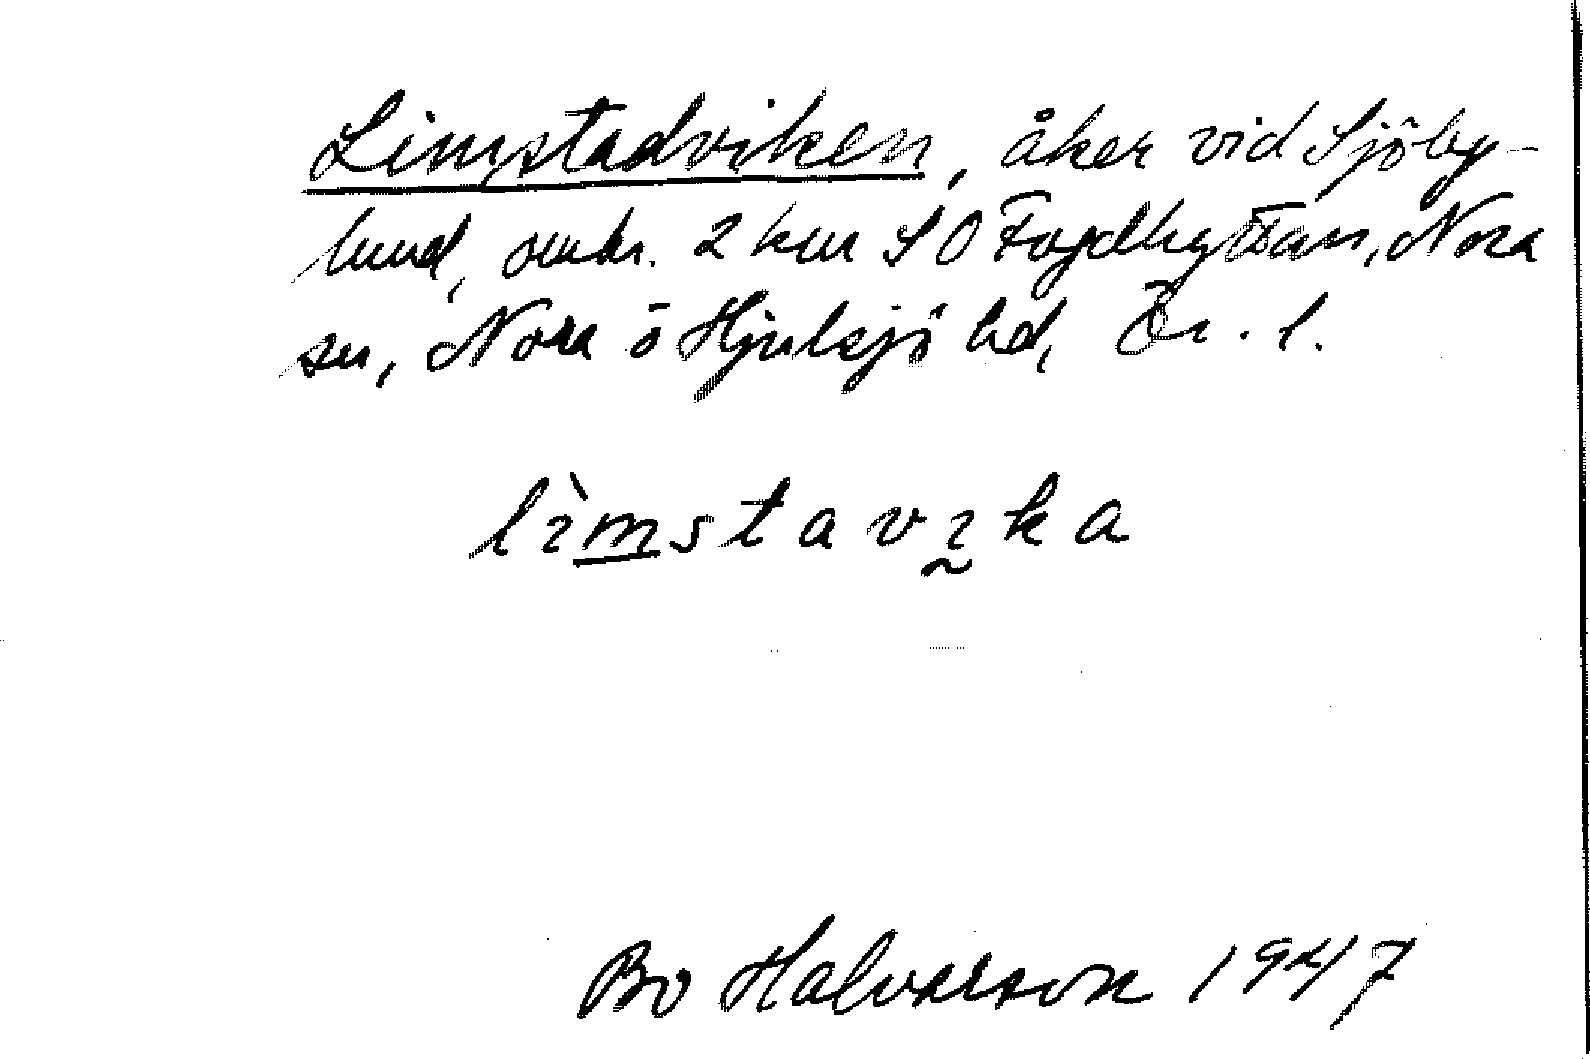 Limstadviken, åker vid Sjöby-
lund, omkr. 2 km SO Fogdhyttan, Nora
sn, Nora o Hjulsjö hd, Ör. l.
lìmstavıka
Bo Halvarson 1947